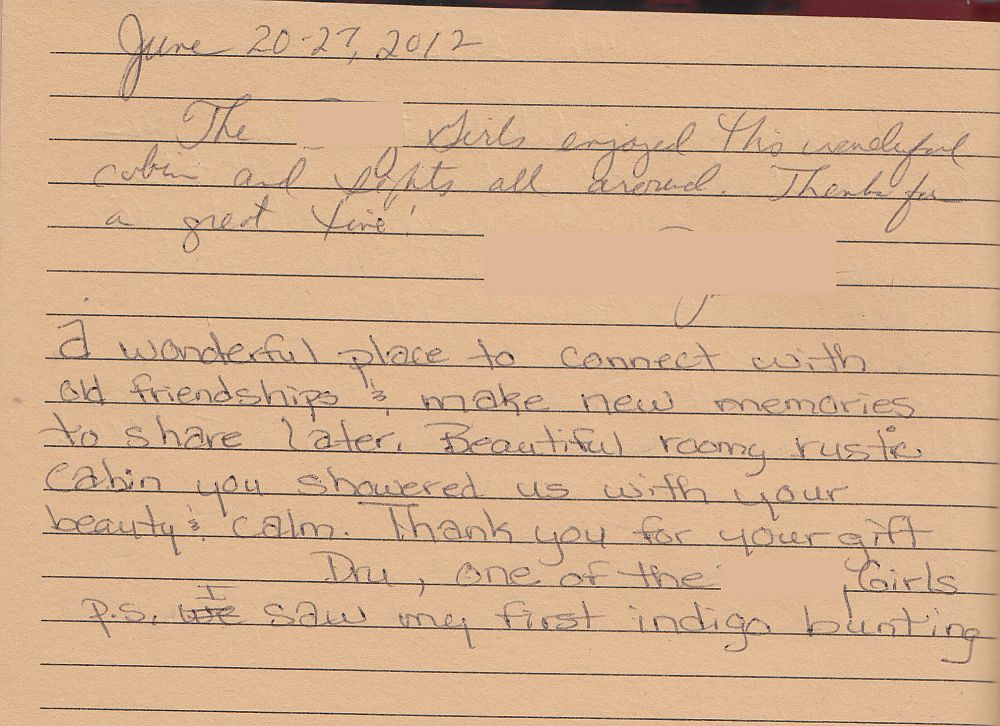 June 20-27, 2012
The Girls enjoyed this wonderful
cabin and sights all around. Thanks for
a great time!
A wonderful place to connect with
old friendships & make new memories
to share later. Beautiful roomy rustic
cabin you showered us with your
beauty & calm. Thank you for your gift
Dru, one of the Girls
P.S. I saw my first indigo bunting